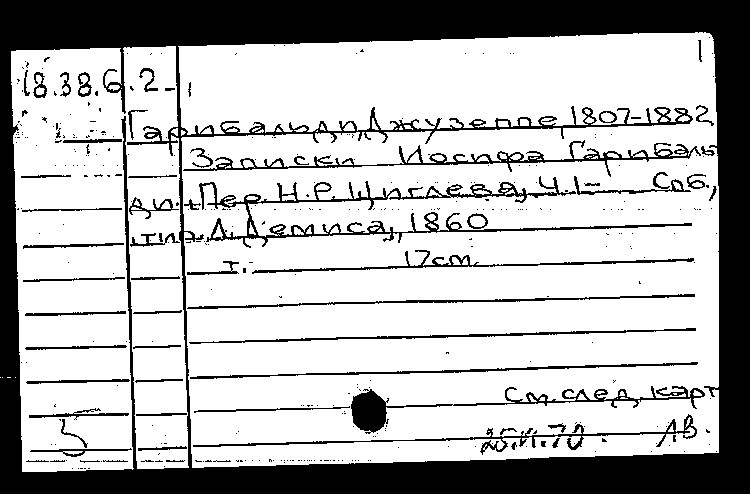 18.38.6.2-
Гарибальди, Джузеппе, 1807-1882
Записки Иосифа Гарибаль-
ди. Пер. Н.Р. Циглева, Ч.1- Спб.,
тип. Д. Демиса, 1860
т. 17см.
См. след. карт
5 25.VI.70. ЛВ.